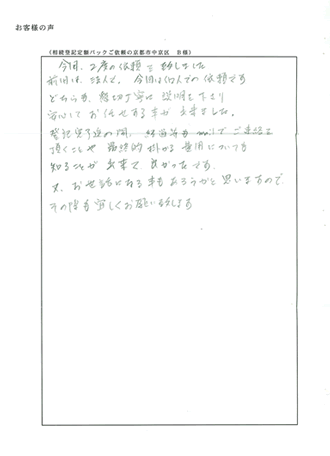 お客様の声
(相続登記定額パックご依頼の京都市中京区 B様)
今回、2度の依頼を致しました
前回は法人で、今回は個人での依頼です
どちらも、懇切丁寧に説明を下さり
安心してお任せする事が出来ました。
登記完了迄の間、経過等もmailでご連絡を
頂くことや最終的掛かる費用についても
知ることが出来て良かったです。
又、お世話になる事もあろうかと思いますので
その際も宜しくお願い致します